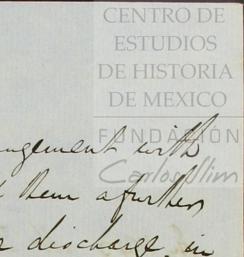 CENTRO DE
ESTUDIOS
DE HISTORIA
DE MEXICO
FUNDACIÓN
Carlos Slim
ngement with
them a further
discharge in